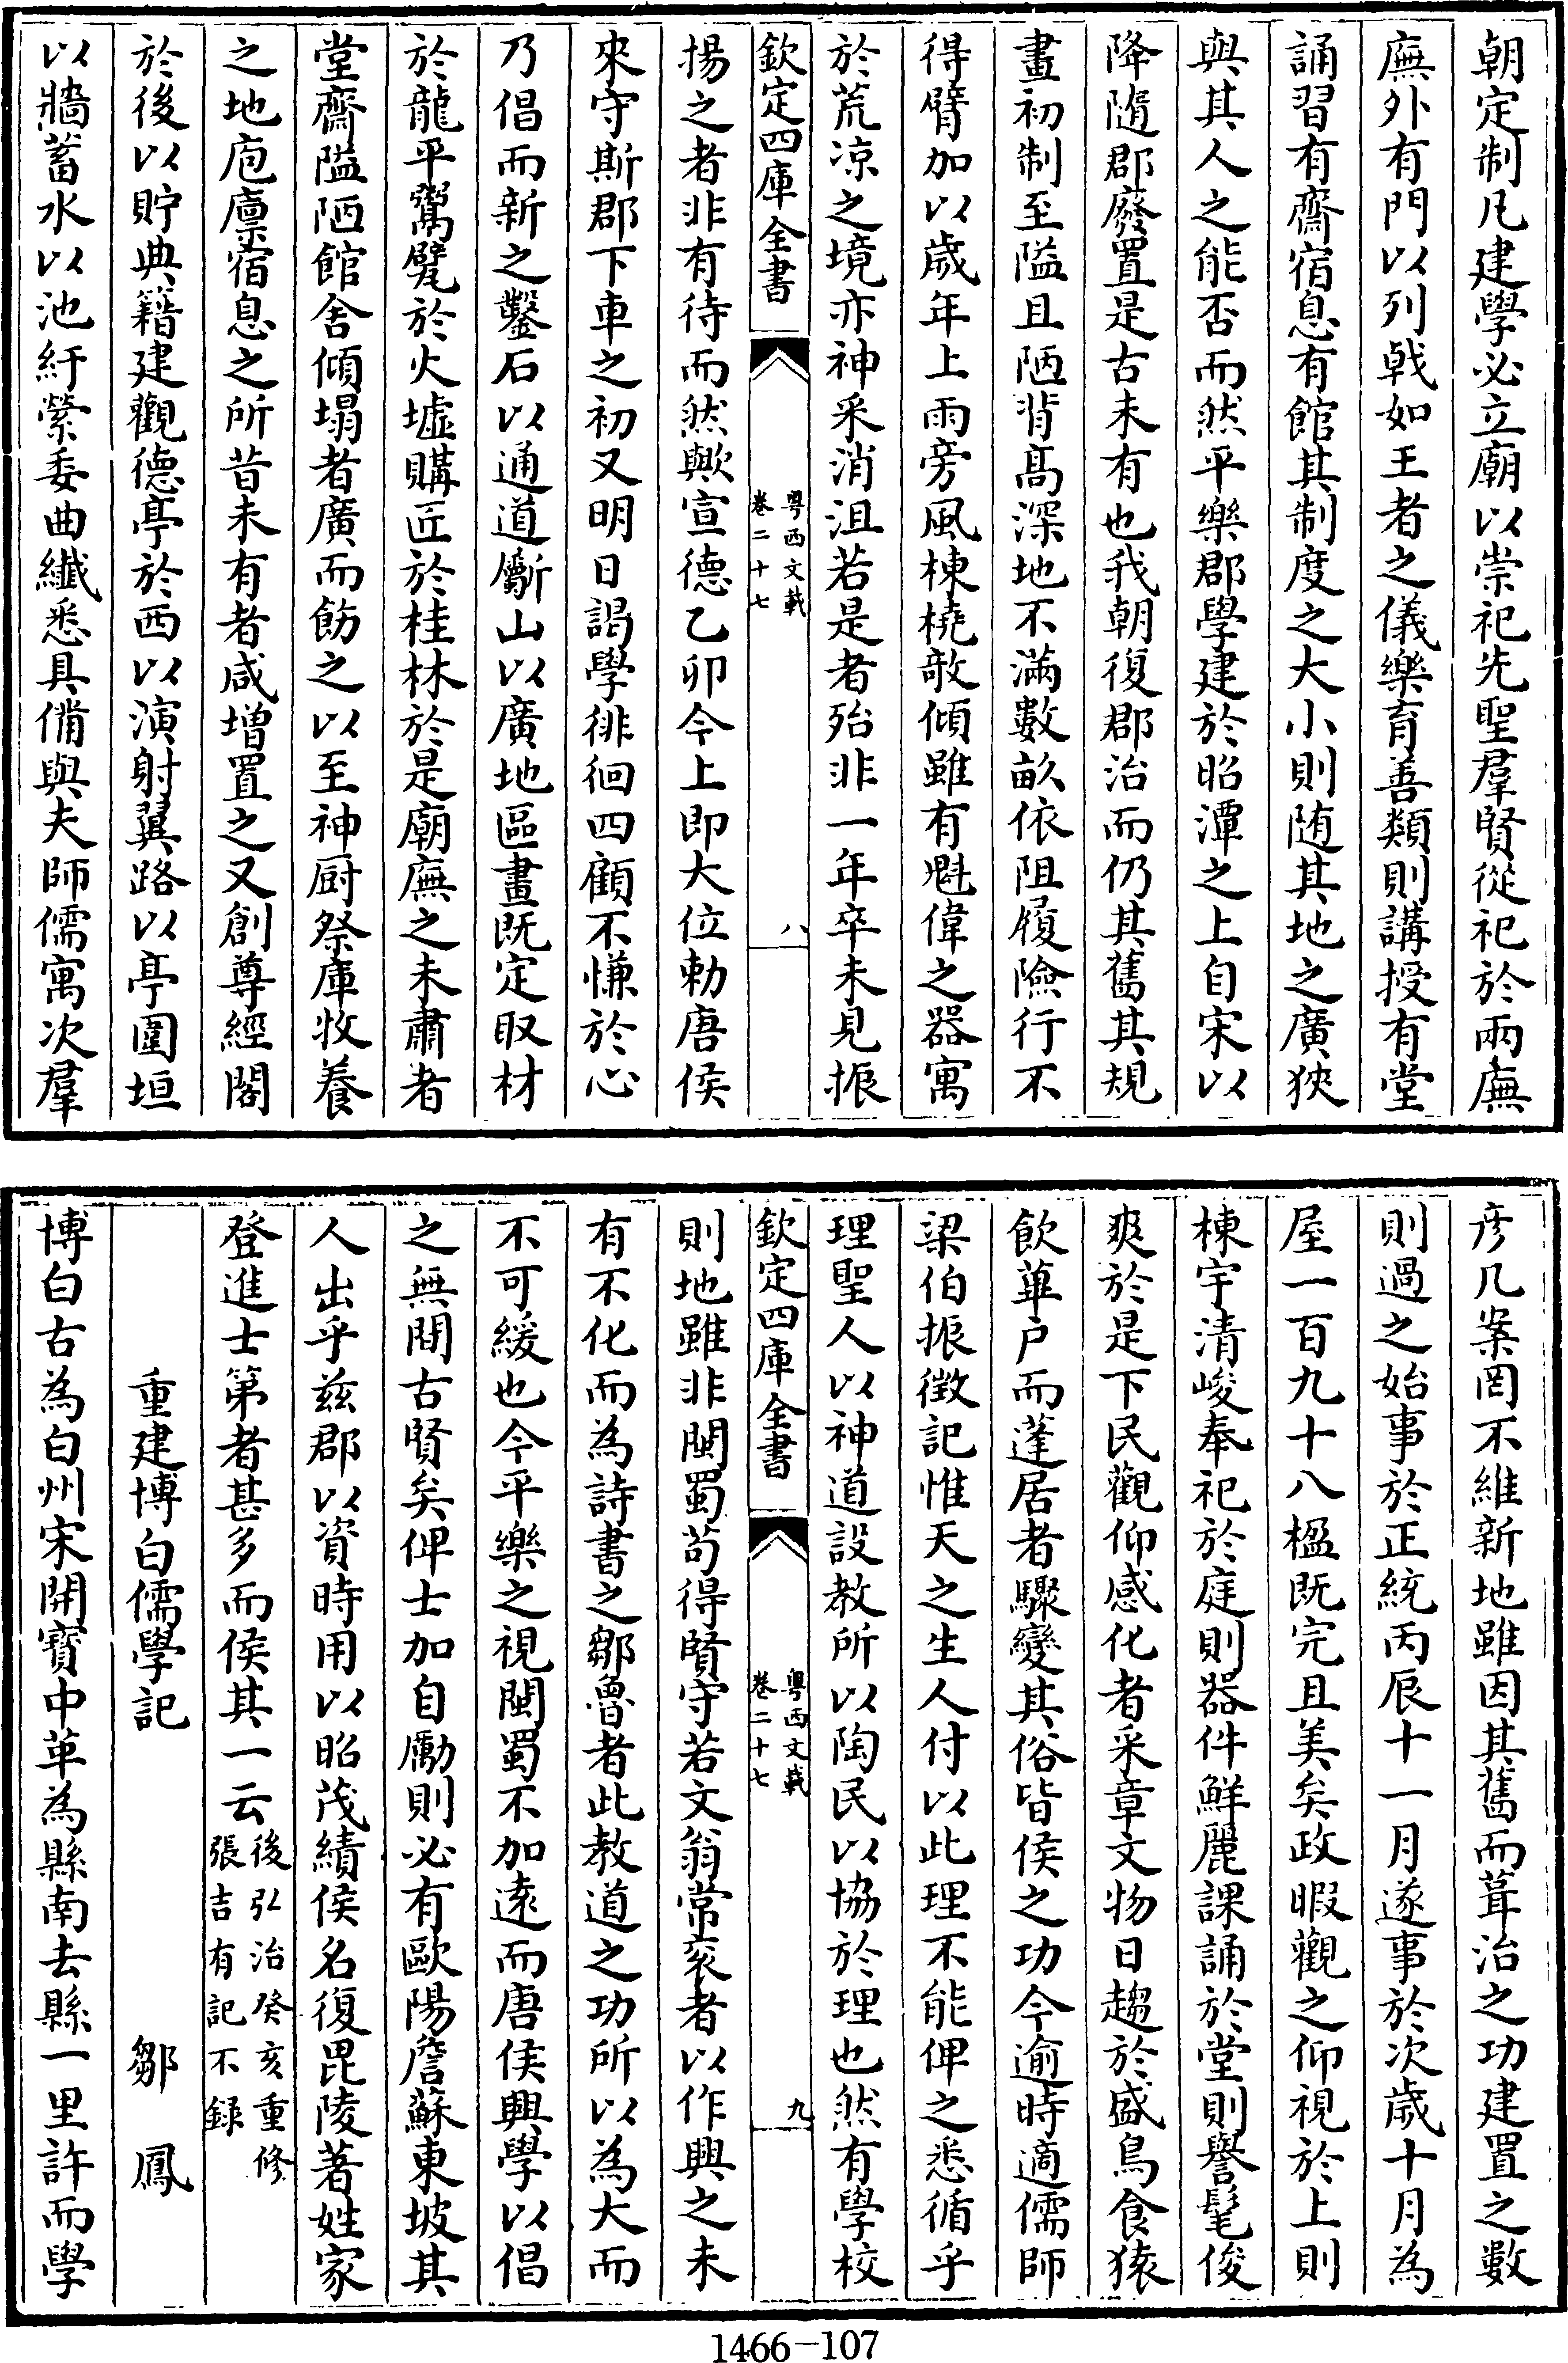 朝定制凡建學必立廟以崇祀先聖羣賢從祀於兩廡
廡外有門以列㦸如王者之儀樂育善類則講授有堂
誦習有齋宿息有館其制度之大小則随其地之廣狹
與其人之能否而然平樂郡學建於昭潭之上自宋以
降隨郡廢置是古未有也我朝復郡治而仍其舊其規
畫初制至隘且陋背髙深地不滿數畝依阻履險行不
得臂加以歲年上雨旁風棟橈欹傾雖有魁偉之器寓
於荒凉之境亦神采消沮若是者殆非一年卒未見振
欽定四庫全書
粤西文載
卷二十七
八
揚之者非有待而然歟宣德乙卯今上即大位勅唐侯
來守斯郡下車之初又明日謁學徘徊四顧不慊於心
乃倡而新之鑿石以通道斸山以廣地區畫既定取材
於龍平鬻甓於火墟購匠於桂林於是廟廡之未肅者
堂齋隘陋館舍傾塌者廣而飭之以至神厨祭庫牧養
之地庖廪宿息之所昔未有者咸增置之又創尊經閣
於後以貯典籍建觀德亭於西以演射翼路以亭圍垣
以牆蓄水以池紆縈委曲纎悉具備與夫師儒寓次羣
彦几案罔不維新地雖因其舊而葺治之功建置之數
則過之始事於正統丙辰十一月遂事於次歲十月為
屋一百九十八楹既完且美矣政暇觀之仰視於上則
棟宇清峻奉祀於庭則器件鮮麗課誦於堂則譽髦俊
爽於是下民觀仰感化者采章文物日趨於盛鳥食猿
飲蓽户而蓬居者驟變其俗皆侯之功今逾時適儒師
梁伯振徵記惟天之生人付以此理不能俾之悉循乎
理聖人以神道設教所以陶民以協於理也然有學校
欽定四庫全書
粤西文載
卷二十七
九
則地雖非閩蜀苟得賢守若文翁常衮者以作興之未
有不化而為詩書之鄒魯者此教道之功所以為大而
不可緩也今平樂之視閩蜀不加遠而唐侯興學以倡
之無間古賢矣俾士加自勵則必有歐陽詹蘇東坡其
人出乎兹郡以資時用以昭茂績侯名復毘陵著姓家
登進士第者甚多而侯其一云後弘治癸亥重修
張吉有記不録
重建博白儒學記 鄒鳳
博白古為白州宋開寳中革為縣南去縣一里許而學
1466－107